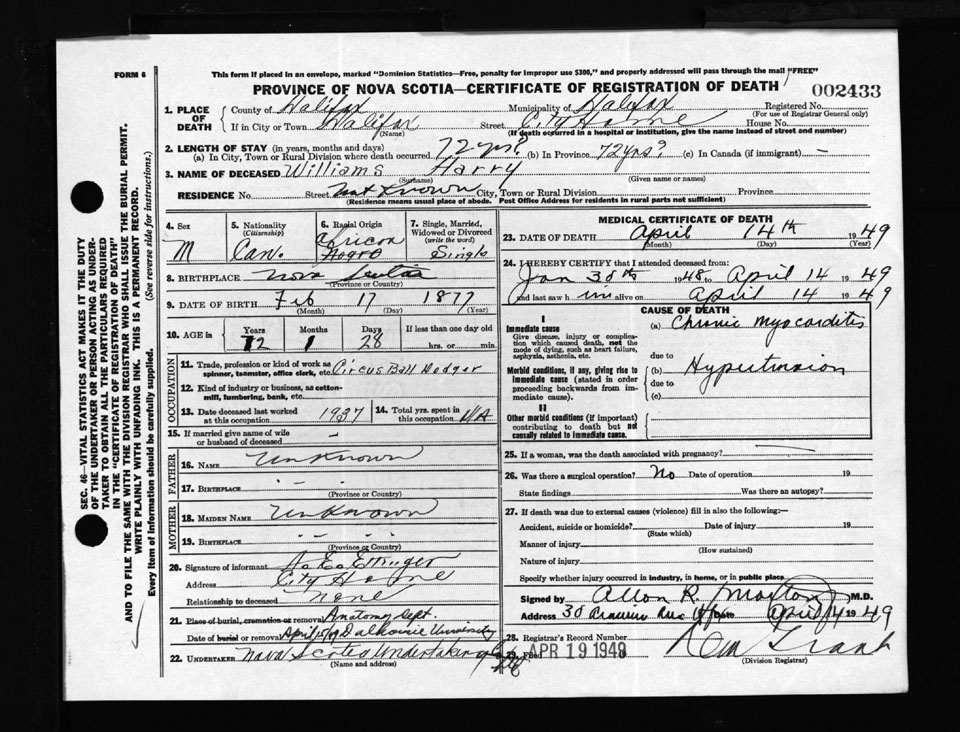 FORM 6
This form if placed in an envelope, marked "Dominion Statistics—Free, penalty for improper use $300," and properly addressed will pass through the mail "FREE"
PROVINCE OF NOVA SCOTIA—CERTIFICATE OF REGISTRATION OF DEATH
002433
1. PLACE OF DEATH
County of Halifax Municipality of Halifax Registered No.
(For use of Registrar General only)
If in City or Town Halifax Street City Home House No.
(Name) (If death occurred in a hospital or institution, give the name instead of street and number)
2. LENGTH OF STAY (in years, months and days)
(a) In City, Town or Rural Division where death occurred 72 yrs? (b) In Province 72 yrs? (c) In Canada (if immigrant) —
3. NAME OF DECEASED Williams Harry
(Surname) (Given name or names)
RESIDENCE No. Street not Known City, Town or Rural Division Province
(Residence means usual place of abode. Post Office Address for residents in rural parts not sufficient)
SEC. 46—VITAL STATISTICS ACT MAKES IT THE DUTY
OF THE UNDERTAKER OR PERSON ACTING AS UNDER-
TAKER TO OBTAIN ALL THE PARTICULARS REQUIRED
IN THE "CERTIFICATE OF REGISTRATION OF DEATH"
AND TO FILE THE SAME WITH THE DIVISION REGISTRAR WHO SHALL ISSUE THE BURIAL PERMIT.
WRITE PLAINLY WITH UNFADING INK. THIS IS A PERMANENT RECORD.
Every item of Information should be carefully supplied. (See reverse side for instructions.)
4. Sex
M
5. Nationality
(Citizenship)
Can.
6. Racial Origin
African
Negro
7. Single, Married,
Widowed or Divorced
(write the word)
Single
8. BIRTHPLACE Nova Scotia
(Province or Country)
9. DATE OF BIRTH Feb 17 1877
(Month) (Day) (Year)
10. AGE in Years Months Days If less than one day old
72 1 28 hrs. or min.
OCCUPATION
11. Trade, profession or kind of work as
spinner, teamster, office clerk, etc. Circus Ball Dodger
12. Kind of industry or business, as cotton-
mill, lumbering, bank, etc.
13. Date deceased last worked
at this occupation 1937
14. Total yrs. spent in
this occupation N/A
15. If married give name of wife
or husband of deceased —
FATHER
16. NAME Unknown
17. BIRTHPLACE
(Province or Country)
MOTHER
18. MAIDEN NAME Unknown
19. BIRTHPLACE
(Province or Country)
20. Signature of informant Ettinger
Address City Home
Relationship to deceased none
21. Place of burial, cremation or removal Anatomy Dept.
Date of burial or removal April 15/49 Dalhousie University
22. UNDERTAKER Nova Scotia Undertaking
(Name and address)
MEDICAL CERTIFICATE OF DEATH
23. DATE OF DEATH April 14th 1949
(Month) (Day) (Year)
24. I HEREBY CERTIFY that I attended deceased from:
Jan 30th 1948, to April 14 1949
and last saw him alive on April 14 1949
CAUSE OF DEATH
I
Immediate cause
Give disease, injury or complica-
tion which caused death, not the
mode of dying, such as heart failure,
asphyxia, asthenia, etc.
(a) Chronic myocarditis
due to
Morbid conditions, if any, giving rise to
immediate cause (stated in order
proceeding backwards from im-
mediate cause).
(b) Hypertension
due to
(c)
II
Other morbid conditions (if important)
contributing to death but not
causally related to immediate cause.
25. If a woman, was the death associated with pregnancy? —
26. Was there a surgical operation? No Date of operation 19
State findings Was there an autopsy?
27. If death was due to external causes (violence) fill in also the following:—
Accident, suicide or homicide? Date of injury 19
(State which)
Manner of injury
(How sustained)
Nature of injury
Specify whether injury occurred in industry, in home, or in public place
Signed by Allan R. Morton M.D.
Address 30 Date April 14 1949
28. Registrar's Record Number
Filed APR 19 1949
(Division Registrar)